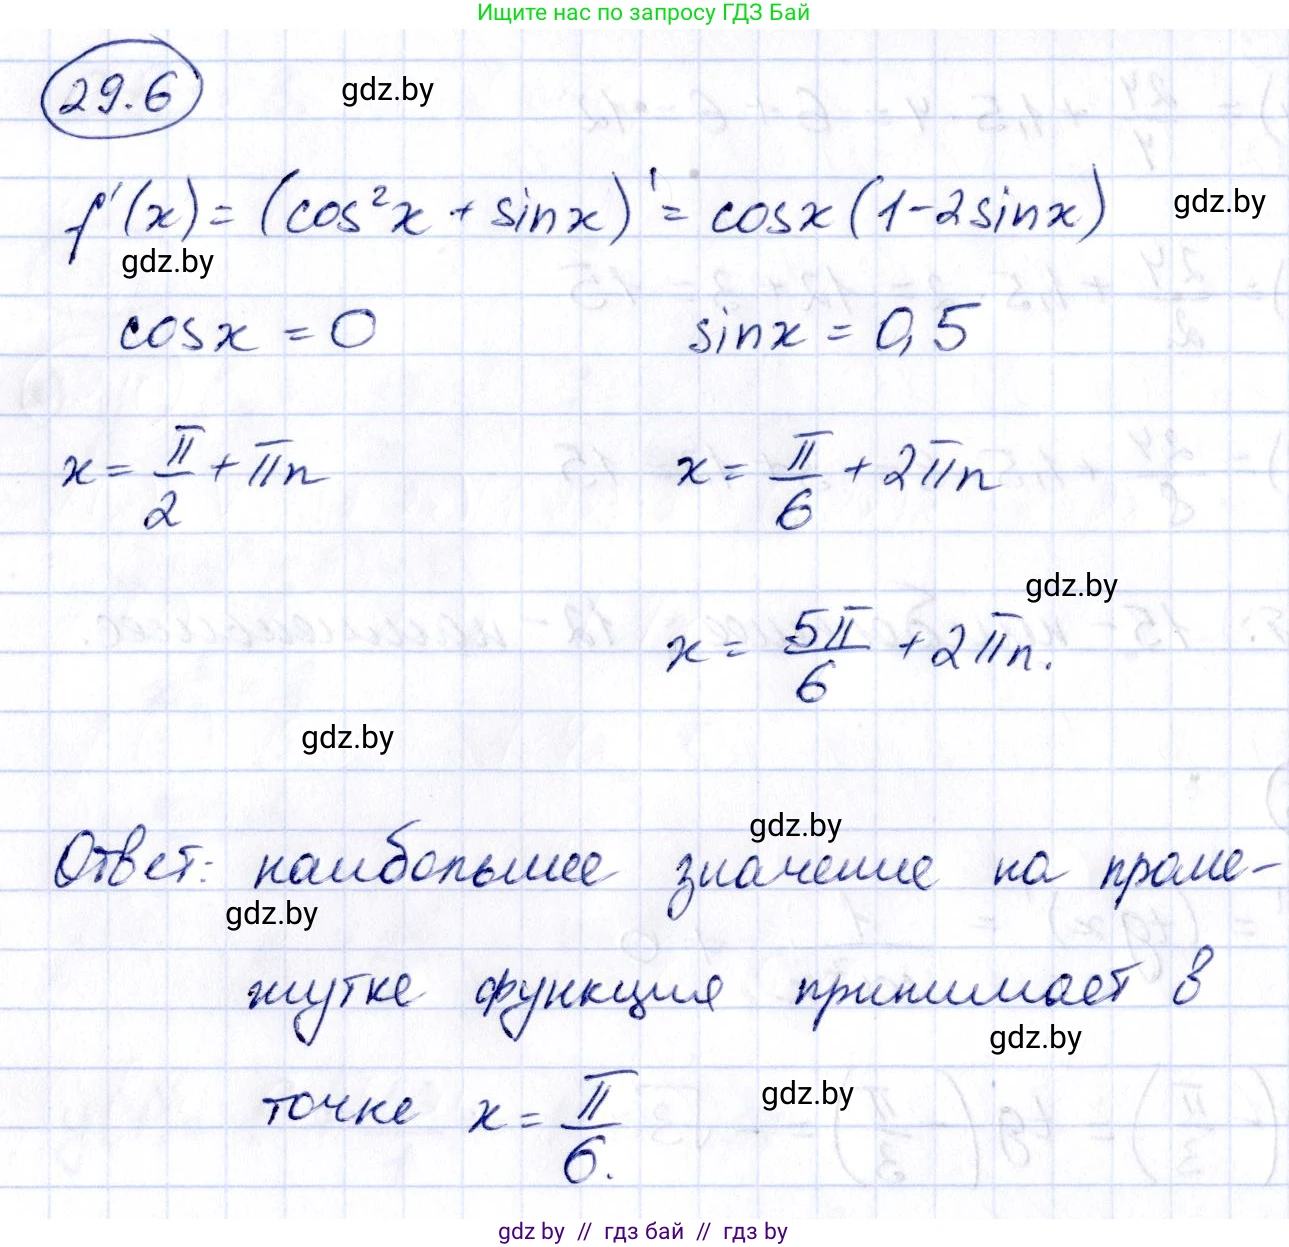 Ищите нас по запросу ГДЗ Бай
29.6
gdz.by
f'(x) = (cos²x + sinx)' = cosx(1-2sinx)
gdz.by
gdz.by
cosx = 0
sinx = 0,5
x = π/2 + πn
x = π/6 + 2πn
gdz.by
x = 5π/6 + 2πn.
gdz.by
gdz.by
Ответ: наибольшее значение на проме-
gdz.by
жутке функция принимает в
gdz.by
gdz.by
точке x = π/6.
gdz.by // гдз бай // гдз by